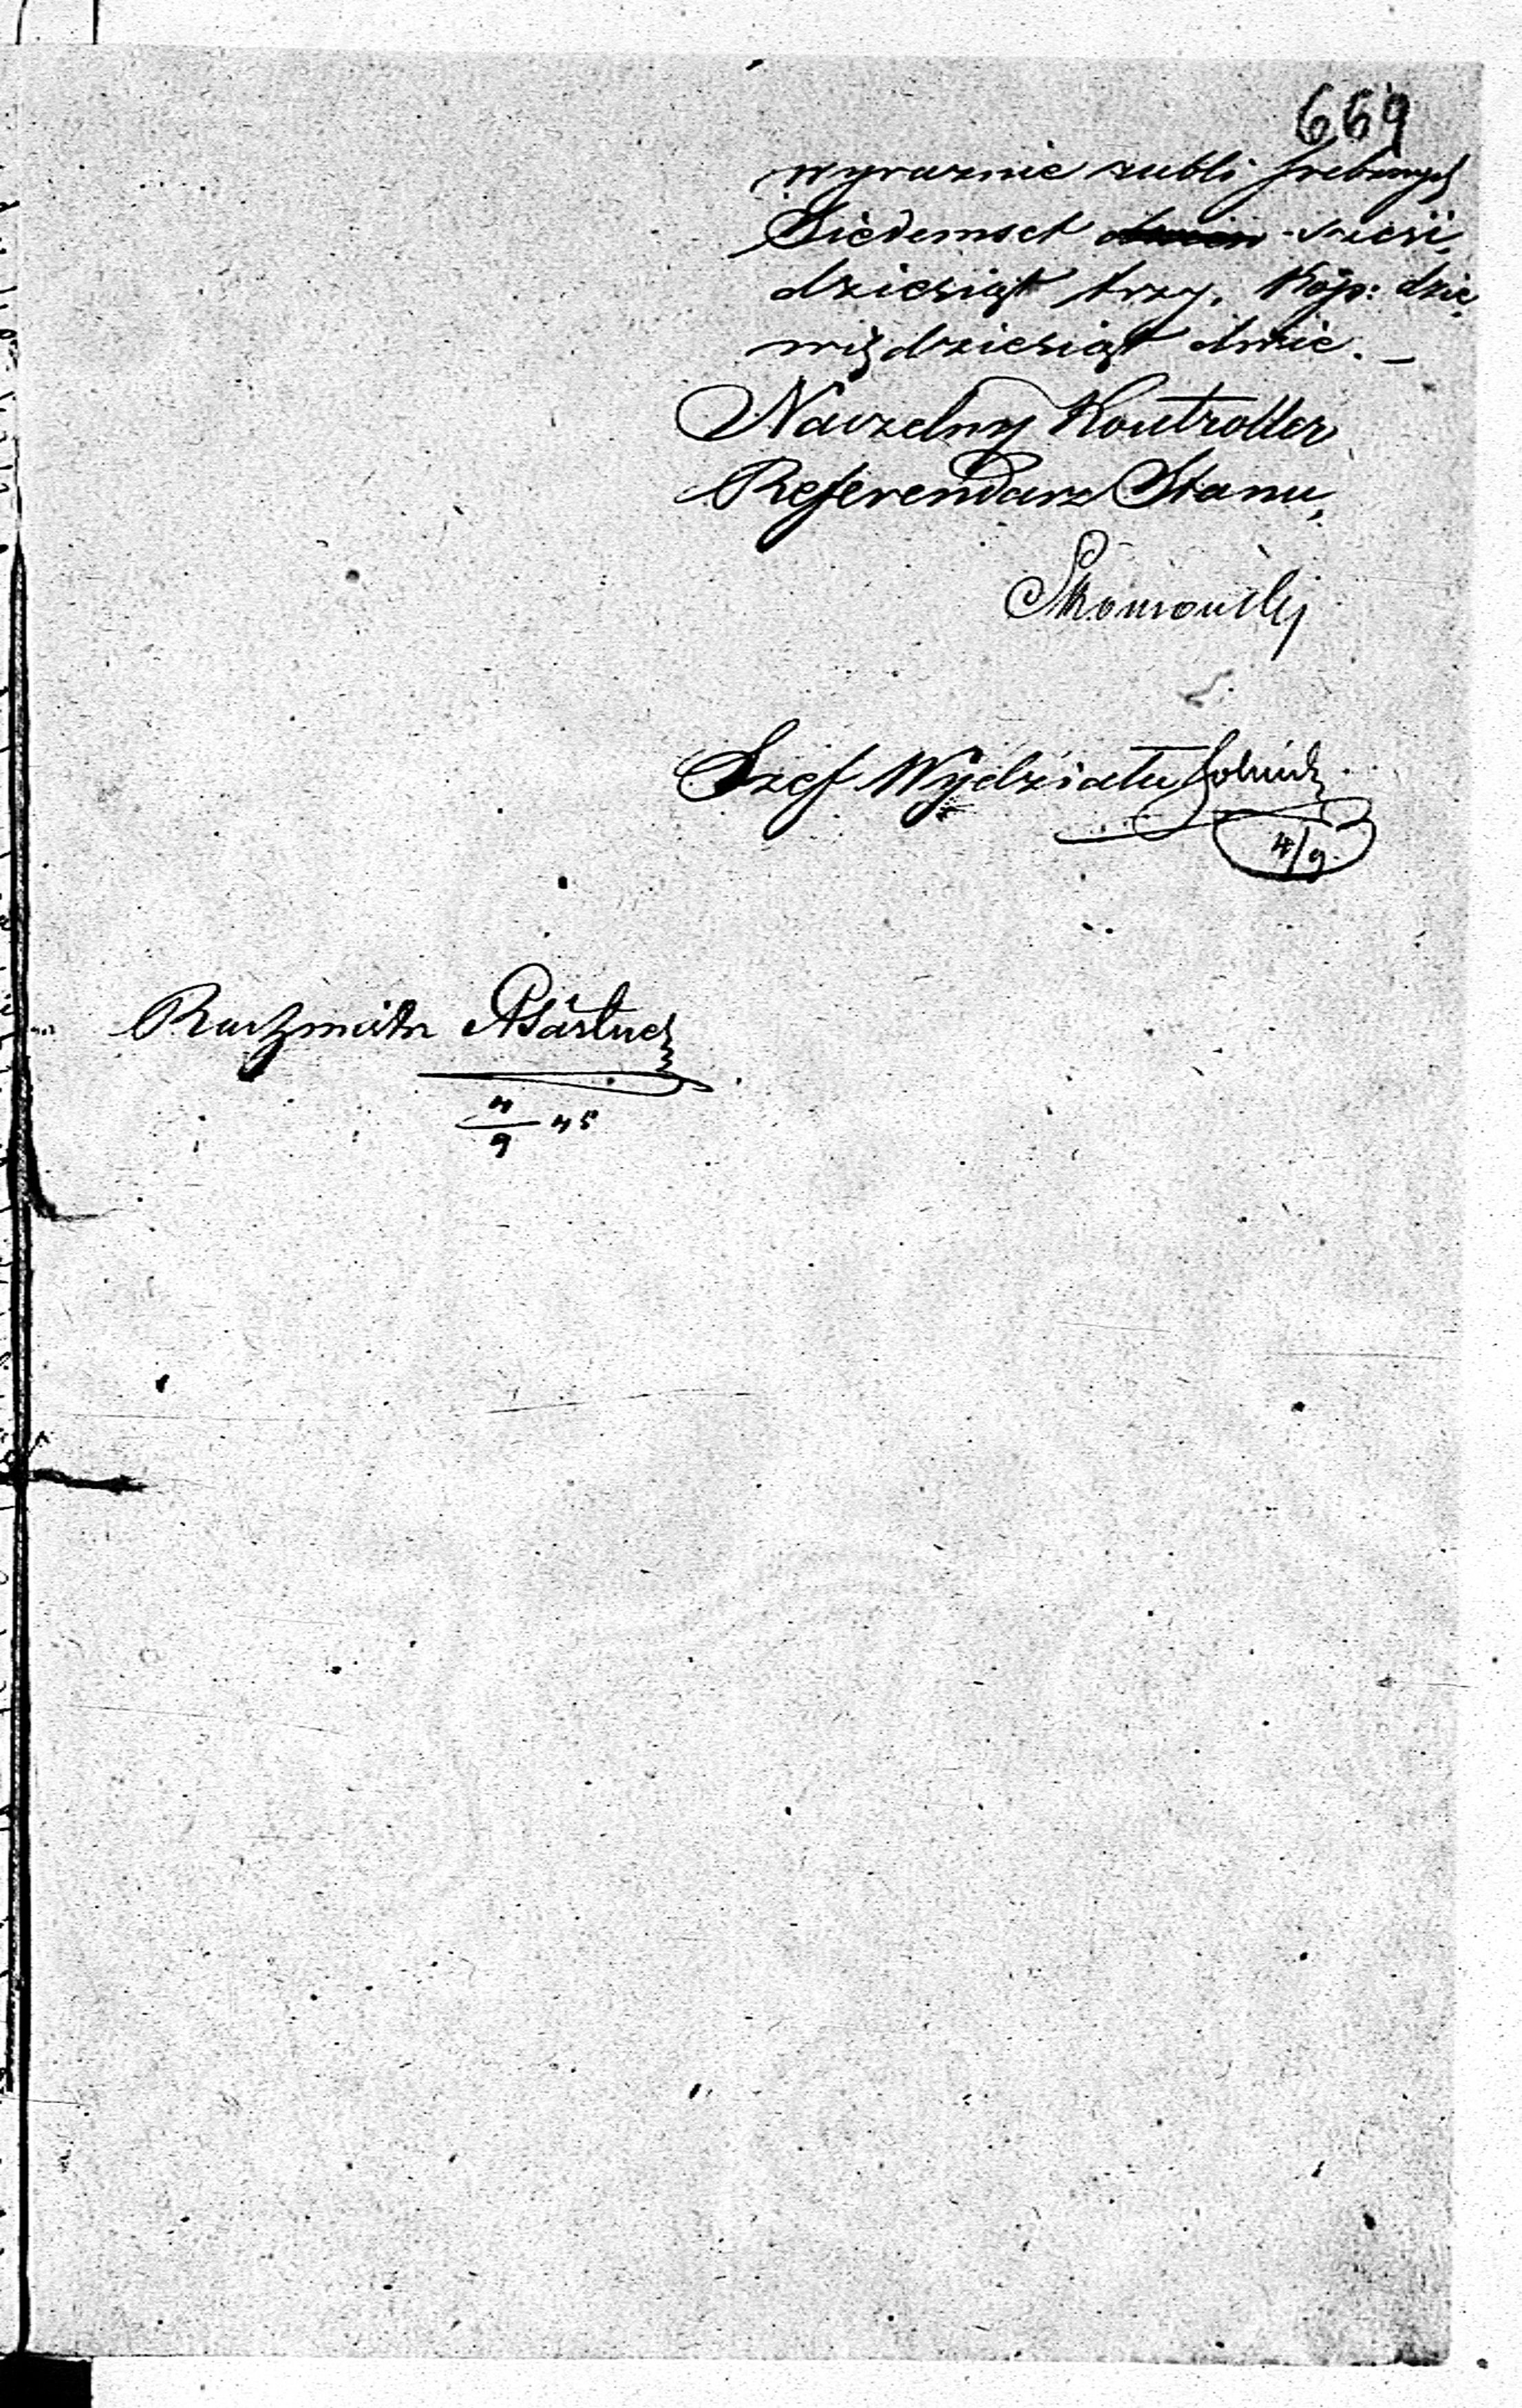 669
wyraznie rubli srebrnych
Siedemset sześć
dziesiąt trzy, Kop: dzie
więdziesiąt dwie. —
Naczelny Kontroller
Referendarz Stanu,
Szef Wydziału
4/9
Rachmistr
4/9 45